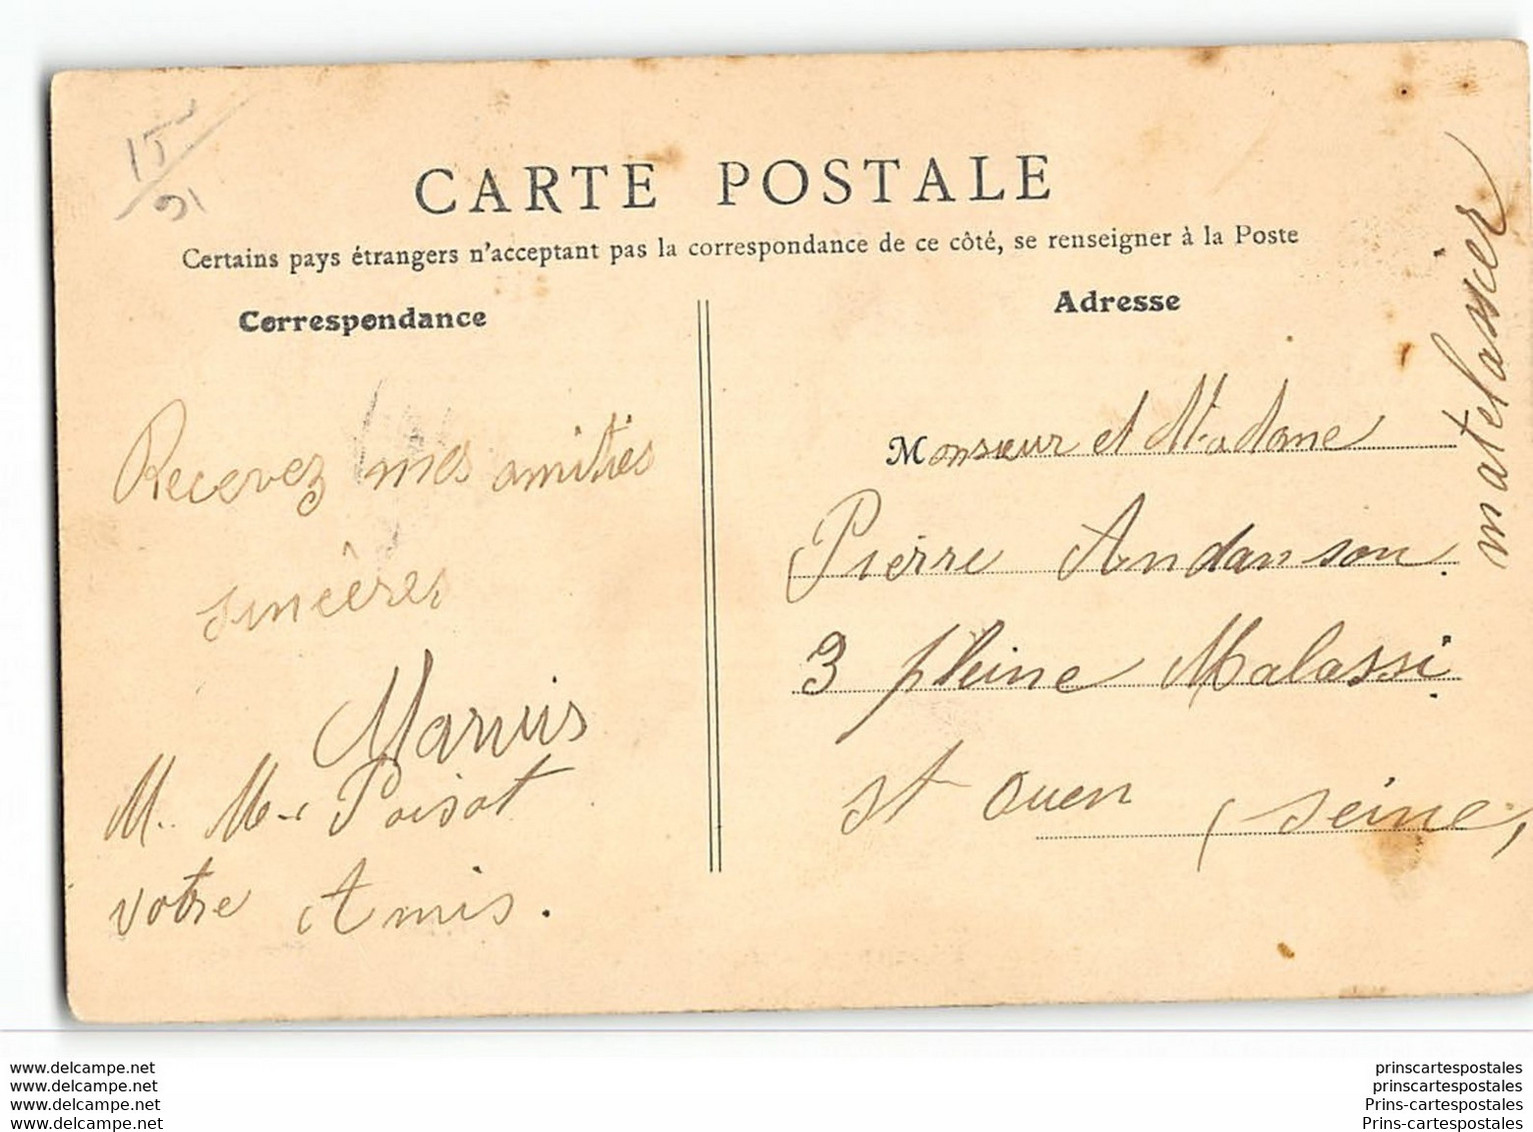 15
91
CARTE POSTALE
Certains pays étrangers n'acceptant pas la correspondance de ce côté, se renseigner à la Poste
Correspondance
Recevez mes amitiés
sincères
Marius
M. Me Poisot
votre Amis.
Adresse
Monsieur et Madame
Pierre Andanson
3 pleine Malassi
St Ouen (Seine,
matelassier
www.delcampe.net
www.delcampe.net
www.delcampe.net
www.delcampe.net
prinscartespostales
prinscartespostales
Prins-cartespostales
Prins-cartespostales